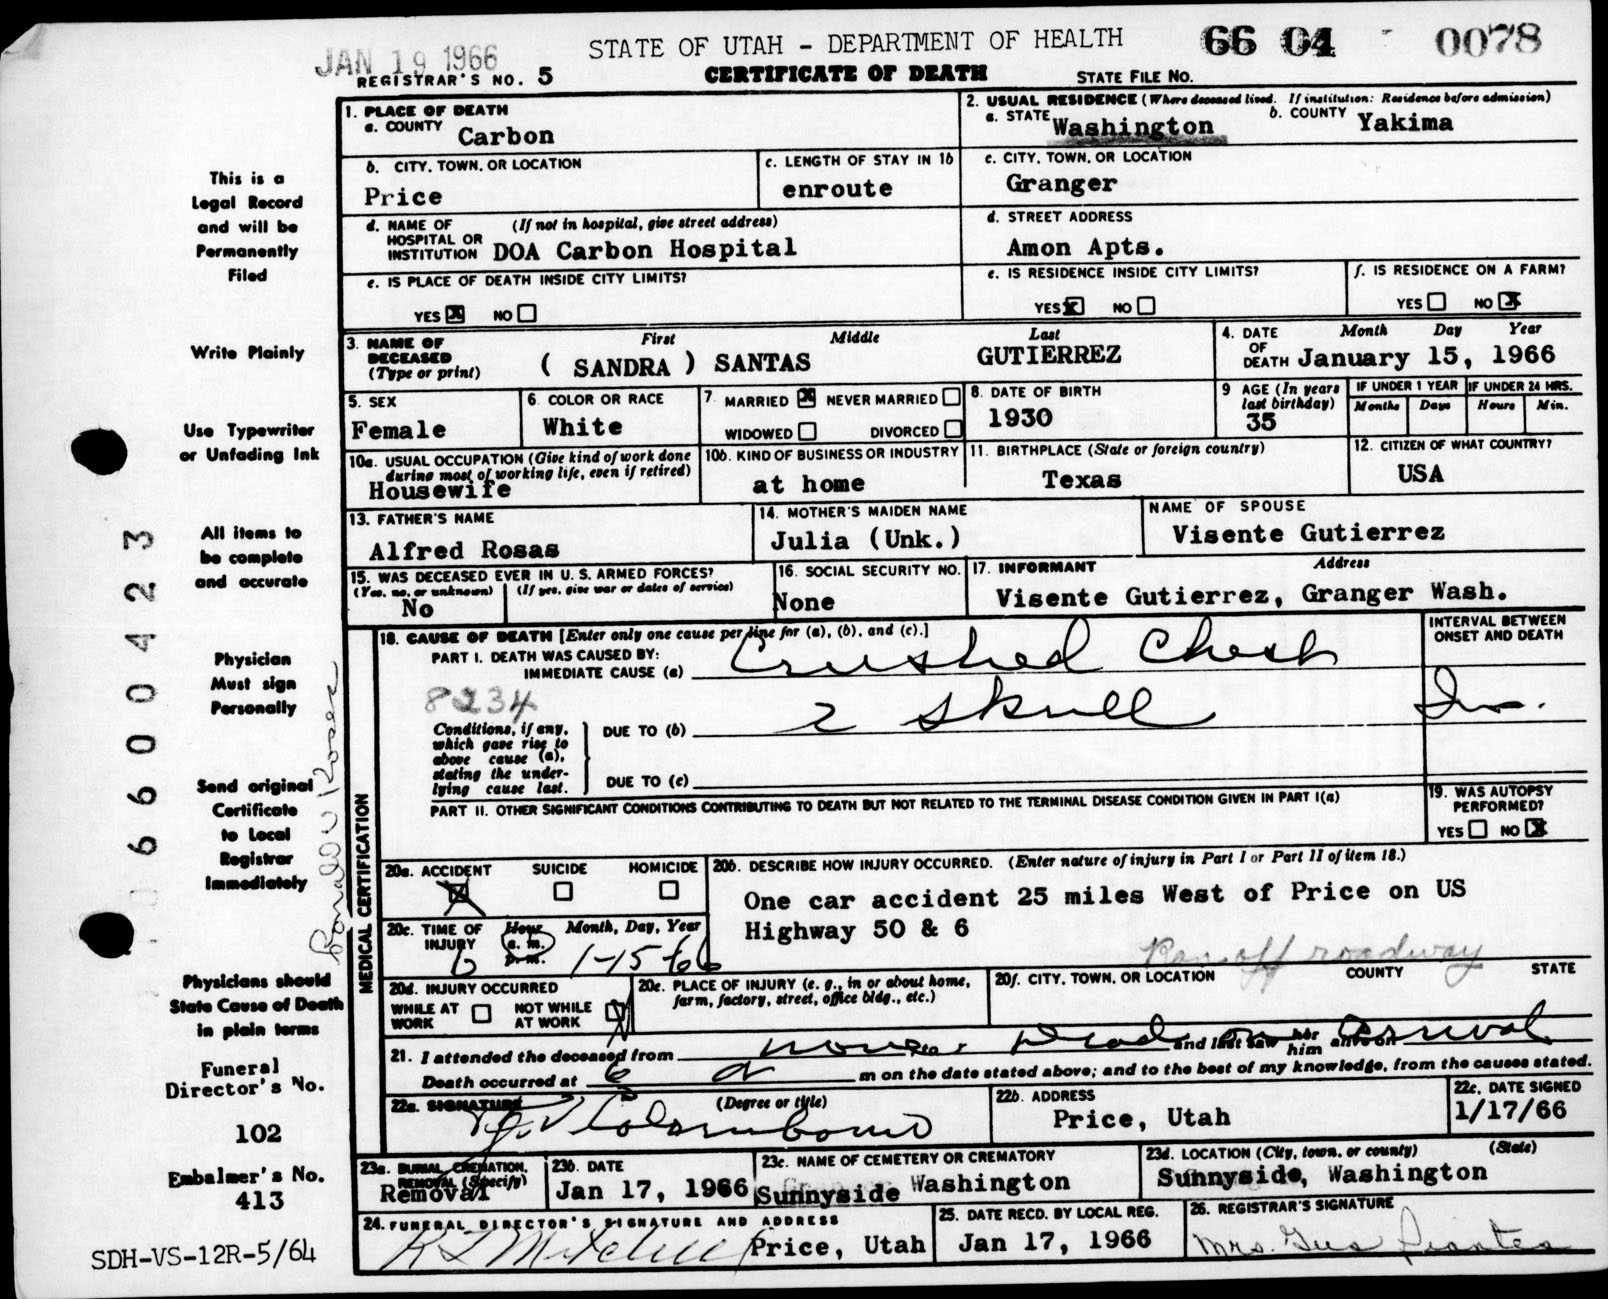 JAN 19 1966
STATE OF UTAH - DEPARTMENT OF HEALTH
66 04 0078
REGISTRAR'S NO. 5
CERTIFICATE OF DEATH
STATE FILE NO.
1. PLACE OF DEATH
a. COUNTY Carbon
2. USUAL RESIDENCE (Where deceased lived. If institution: Residence before admission)
a. STATE Washington
b. COUNTY Yakima
b. CITY, TOWN, OR LOCATION
Price
c. LENGTH OF STAY IN 1b
enroute
c. CITY, TOWN, OR LOCATION
Granger
d. NAME OF HOSPITAL OR INSTITUTION (If not in hospital, give street address)
DOA Carbon Hospital
d. STREET ADDRESS
Amon Apts.
e. IS PLACE OF DEATH INSIDE CITY LIMITS?
YES X NO
e. IS RESIDENCE INSIDE CITY LIMITS?
YES X NO
f. IS RESIDENCE ON A FARM?
YES NO X
3. NAME OF DECEASED (Type or print)
First Middle Last
( SANDRA ) SANTAS GUTIERREZ
4. DATE OF DEATH Month Day Year
January 15, 1966
5. SEX
Female
6. COLOR OR RACE
White
7. MARRIED X NEVER MARRIED
WIDOWED DIVORCED
8. DATE OF BIRTH
1930
9 AGE (In years last birthday)
35
IF UNDER 1 YEAR
Months Days
IF UNDER 24 HRS.
Hours Min.
10a. USUAL OCCUPATION (Give kind of work done during most of working life, even if retired)
Housewife
10b. KIND OF BUSINESS OR INDUSTRY
at home
11. BIRTHPLACE (State or foreign country)
Texas
12. CITIZEN OF WHAT COUNTRY?
USA
13. FATHER'S NAME
Alfred Rosas
14. MOTHER'S MAIDEN NAME
Julia (Unk.)
NAME OF SPOUSE
Visente Gutierrez
15. WAS DECEASED EVER IN U. S. ARMED FORCES?
(Yes, no, or unknown) (If yes, give war or dates of service)
No
16. SOCIAL SECURITY NO.
None
17. INFORMANT Address
Visente Gutierrez, Granger Wash.
MEDICAL CERTIFICATION
18. CAUSE OF DEATH [Enter only one cause per line for (a), (b), and (c).]
INTERVAL BETWEEN ONSET AND DEATH
PART I. DEATH WAS CAUSED BY:
IMMEDIATE CAUSE (a) Crushed Chest
8234
Conditions, if any, which gave rise to above cause (a), stating the underlying cause last.
DUE TO (b) & Skull
DUE TO (c)
PART II. OTHER SIGNIFICANT CONDITIONS CONTRIBUTING TO DEATH BUT NOT RELATED TO THE TERMINAL DISEASE CONDITION GIVEN IN PART I(a)
19. WAS AUTOPSY PERFORMED?
YES NO X
20a. ACCIDENT X SUICIDE HOMICIDE
20b. DESCRIBE HOW INJURY OCCURRED. (Enter nature of injury in Part I or Part II of item 18.)
One car accident 25 miles West of Price on US
Highway 50 & 6
Ran off roadway
20c. TIME OF INJURY Hour a. m. p. m. Month, Day, Year
6 1-15-66
20d. INJURY OCCURRED
WHILE AT WORK NOT WHILE AT WORK X
20e. PLACE OF INJURY (e. g., in or about home, farm, factory, street, office bldg., etc.)
20f. CITY, TOWN, OR LOCATION COUNTY STATE
21. I attended the deceased from none to Dead on arrival and last saw her him alive on
Death occurred at 6 a m on the date stated above; and to the best of my knowledge, from the causes stated.
22a. SIGNATURE (Degree or title)
Colombo
22b. ADDRESS
Price, Utah
22c. DATE SIGNED
1/17/66
23a. BURIAL, CREMATION, REMOVAL (Specify)
Removal
23b. DATE
Jan 17, 1966
23c. NAME OF CEMETERY OR CREMATORY
Sunnyside Washington
23d. LOCATION (City, town, or county) (State)
Sunnyside, Washington
24. FUNERAL DIRECTOR'S SIGNATURE AND ADDRESS
Mitchell Price, Utah
25. DATE RECD. BY LOCAL REG.
Jan 17, 1966
26. REGISTRAR'S SIGNATURE
Mrs. Gus
This is a
Legal Record
and will be
Permanently
Filed
Write Plainly
Use Typewriter
or Unfading Ink
All items to
be complete
and accurate
Physician
Must sign
Personally
Send original
Certificate
to Local
Registrar
Immediately
Physicians should
State Cause of Death
in plain terms
Funeral
Director's No.
102
Embalmer's No.
413
SDH-VS-12R-5/64
6600423